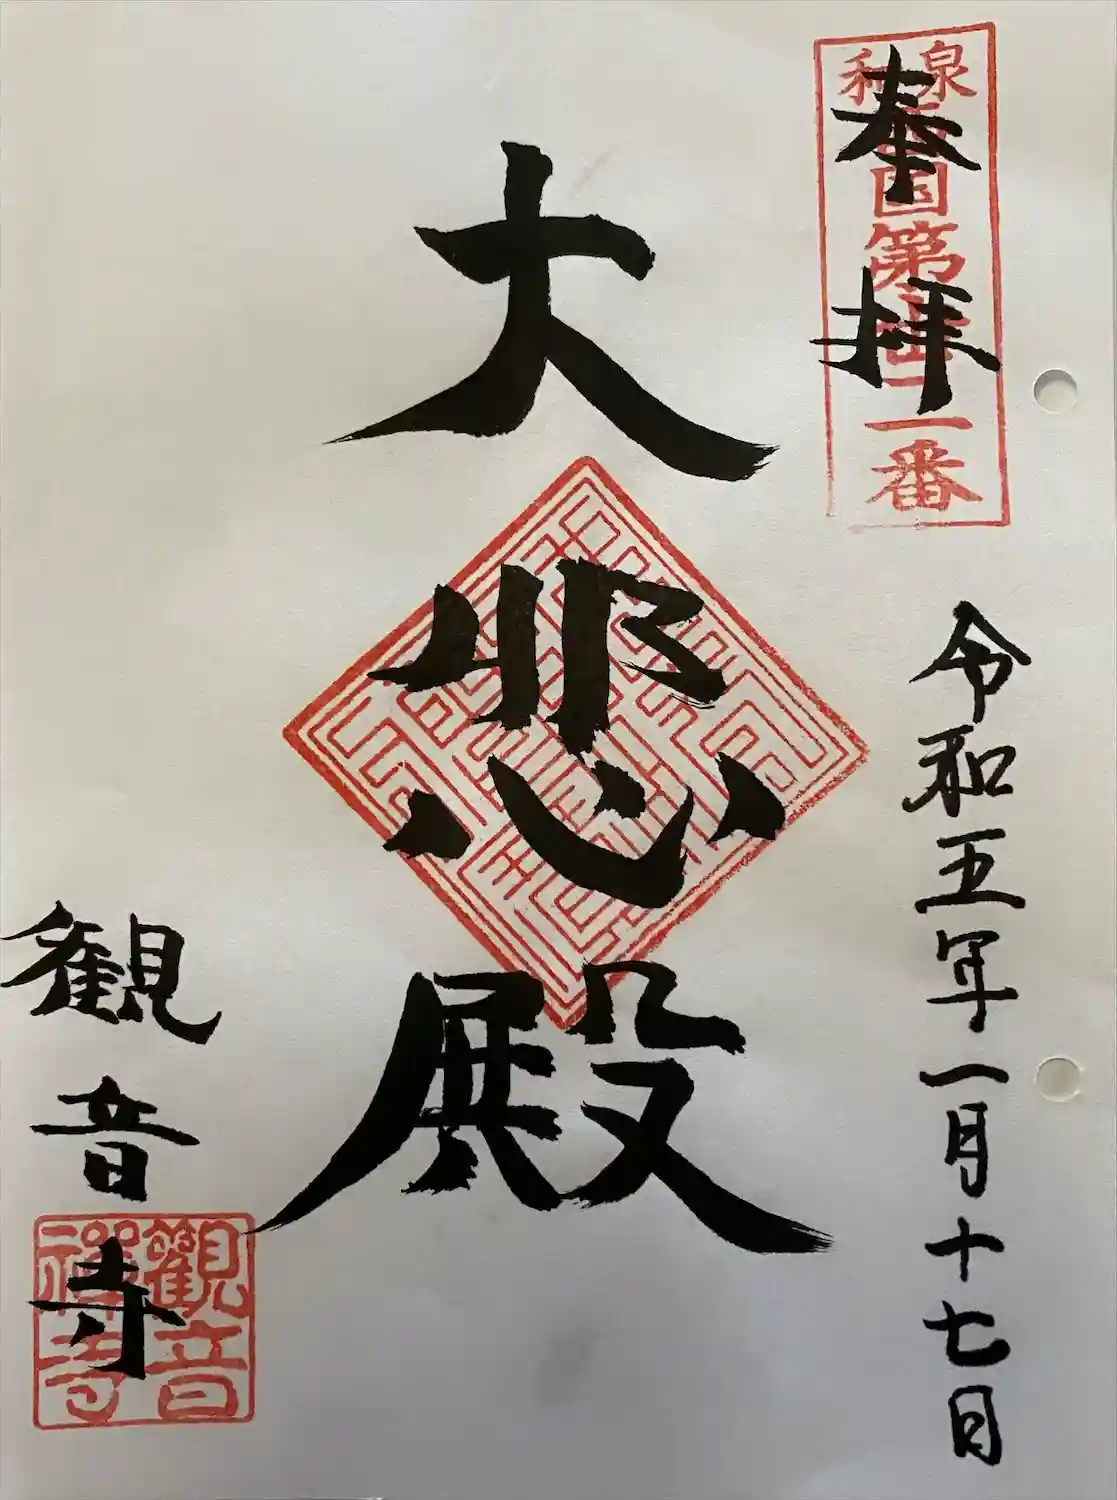 奉拝
和泉
西国第三十二番
令和五年一月十七日
大悲殿
観音寺
觀音禅寺